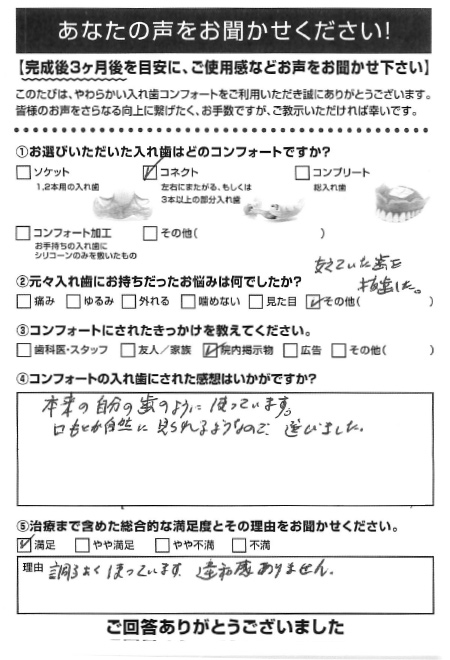 あなたの声をお聞かせください!
【完成後3ヶ月後を目安に、ご使用感などお声をお聞かせ下さい】
このたびは、やわらかい入れ歯コンフォートをご利用いただき誠にありがとうございます。
皆様のお声をさらなる向上に繋げたく、お手数ですが、ご教示いただければ幸いです。
①お選びいただいた入れ歯はどのコンフォートですか?
□ソケット ☑コネクト □コンプリート
1,2本用の入れ歯 左右にまたがる、もしくは 総入れ歯
3本以上の部分入れ歯
□コンフォート加工 □その他( )
お手持ちの入れ歯に
シリコーンのみを敷いたもの
支えていた歯を
抜歯した。
②元々入れ歯にお持ちだったお悩みは何でしたか?
□痛み □ゆるみ □外れる □噛めない □見た目 ☑その他( )
③コンフォートにされたきっかけを教えてください。
□歯科医・スタッフ □友人/家族 ☑院内掲示物 □広告 □その他( )
④コンフォートの入れ歯にされた感想はいかがですか?
本来の自分の歯のように使っています。
口もとが自然に見られるようなので、選びました。
⑤治療まで含めた総合的な満足度とその理由をお聞かせください。
☑満足 □やや満足 □やや不満 □不満
理由 調子よく使っています。違和感ありません。
ご回答ありがとうございました